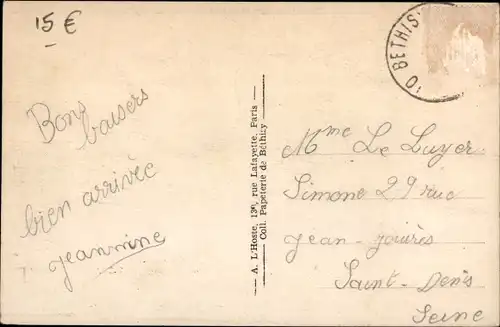 15 €
Bons
baisers
bien arrivée
Jeannine
— A. L'Hoste, 130, rue Lafayette, Paris —
Coll. Papeterie de Béthisy
BETHIS
Mme Le Luyer
Simone 29 rue
Jean-Jaurès
Saint-Denis
Seine